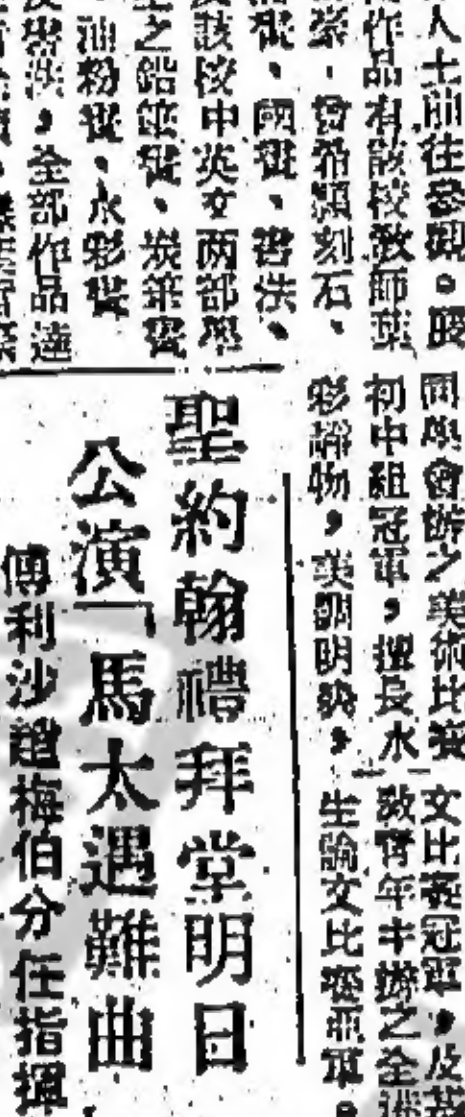 人士前往參觀。殷
作品有該校教師葉
曾希穎刻石、
國畫、書法、
該校中英文两部學
之鉛筆畫、炭筆畫
油粉畫、水彩畫
全部作品達
同學會辦之美術比賽
初中組冠軍，擅長水
彩靜物，美調明快，
文比賽冠軍，及基
敎青年部辦之全港
生論文比賽亞軍。
聖約翰禮拜堂明日
公演「馬太遇難曲
傅利沙趙梅伯分任指揮